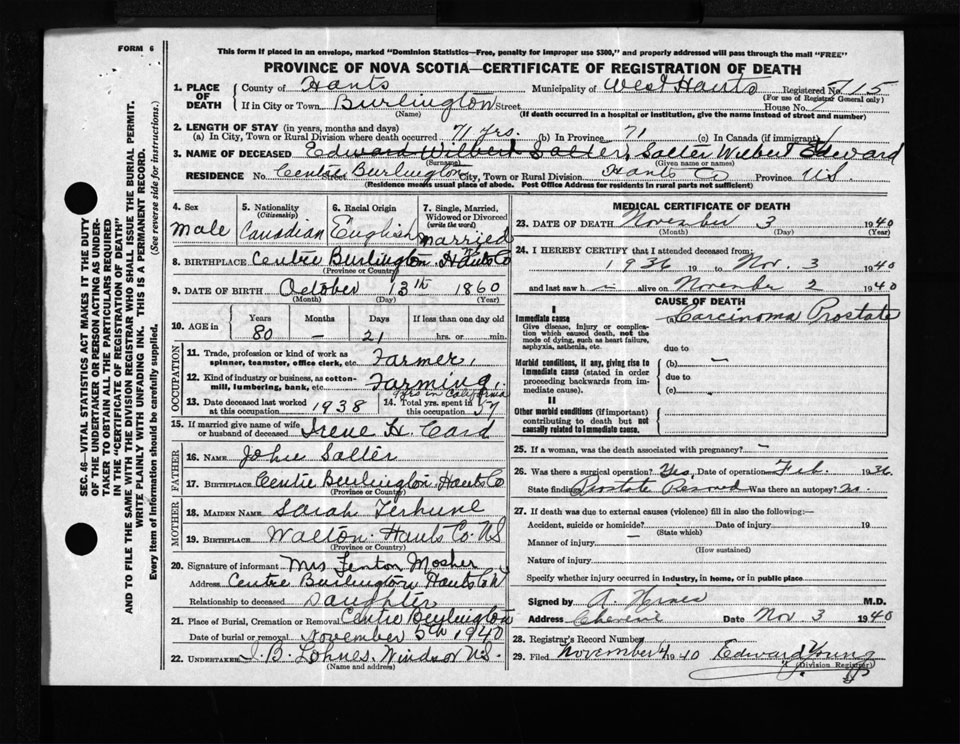 FORM 6
This form if placed in an envelope, marked "Dominion Statistics—Free, penalty for improper use $300," and properly addressed will pass through the mail "FREE"
PROVINCE OF NOVA SCOTIA—CERTIFICATE OF REGISTRATION OF DEATH
SEC. 46—VITAL STATISTICS ACT MAKES IT THE DUTY
OF THE UNDERTAKER OR PERSON ACTING AS UNDER-
TAKER TO OBTAIN ALL THE PARTICULARS REQUIRED
IN THE "CERTIFICATE OF REGISTRATION OF DEATH"
AND TO FILE THE SAME WITH THE DIVISION REGISTRAR WHO SHALL ISSUE THE BURIAL PERMIT.
WRITE PLAINLY WITH UNFADING INK. THIS IS A PERMANENT RECORD.
Every item of Information should be carefully supplied. (See reverse side for instructions.)
1. PLACE OF DEATH County of Hants Municipality of West Hants Registered No. 715
(For use of Registrar General only)
If in City or Town Burlington Street House No.
(Name) (If death occurred in a hospital or institution, give the name instead of street and number)
2. LENGTH OF STAY (in years, months and days)
(a) In City, Town or Rural Division where death occurred 71 yrs. (b) In Province 71 (c) In Canada (if immigrant)
3. NAME OF DECEASED Edward Wilbert Salter, Salter Wilbert Edward
(Surname) (Given name or names)
RESIDENCE No. Centre Burlington City, Town or Rural Division Hants Co Province N.S.
(Residence means usual place of abode. Post Office Address for residents in rural parts not sufficient)
4. Sex 5. Nationality (Citizenship) 6. Racial Origin 7. Single, Married, Widowed or Divorced (write the word)
Male Canadian English Married
8. BIRTHPLACE Centre Burlington. Hants Co
(Province or Country)
9. DATE OF BIRTH October 13th 1860
(Month) (Day) (Year)
10. AGE in Years Months Days If less than one day old
80 — 21 hrs. or min.
OCCUPATION
11. Trade, profession or kind of work as spinner, teamster, office clerk, etc. Farmer,
12. Kind of industry or business, as cotton-mill, lumbering, bank, etc. Farming,
9 yrs in California
13. Date deceased last worked at this occupation 1938 14. Total yrs. spent in this occupation 57
15. If married give name of wife or husband of deceased Irene H. Card
FATHER
16. Name John Salter
17. Birthplace Centre Burlington Hants Co
(Province or Country)
MOTHER
18. Maiden Name Sarah Terhune
19. Birthplace Walton. Hants Co. NS
(Province or Country)
20. Signature of informant Mrs Fenton Mosher
Address Centre Burlington Hants Co NS
Relationship to deceased Daughter
21. Place of Burial, Cremation or Removal Centre Burlington
Date of burial or removal November 5th 1940
22. Undertaker J. B. Lohnes. Windsor N.S.
(Name and address)
MEDICAL CERTIFICATE OF DEATH
23. DATE OF DEATH November 3 1940
(Month) (Day) (Year)
24. I HEREBY CERTIFY that I attended deceased from:
1936 19 to Nov. 3 1940
and last saw h i alive on November 2 1940
CAUSE OF DEATH
I
Immediate cause Carcinoma Prostate
Give disease, injury or complication which caused death, not the mode of dying, such as heart failure, asphyxia, asthenia, etc.
due to
Morbid conditions, if any, giving rise to immediate cause (stated in order proceeding backwards from immediate cause).
(b) —
due to
(c)
II
Other morbid conditions (if important) contributing to death but not causally related to immediate cause.
25. If a woman, was the death associated with pregnancy? —
26. Was there a surgical operation? Yes, Date of operation Feb. 1936
State finding Prostate Removed Was there an autopsy? No.
27. If death was due to external causes (violence) fill in also the following:—
Accident, suicide or homicide? Date of injury 19
(State which)
Manner of injury —
(How sustained)
Nature of injury
Specify whether injury occurred in industry, in home, or in public place
Signed by M.D.
Address Date Nov 3 1940
28. Registrar's Record Number
29. Filed November 4 1940 Edward Young
(Division Registrar)